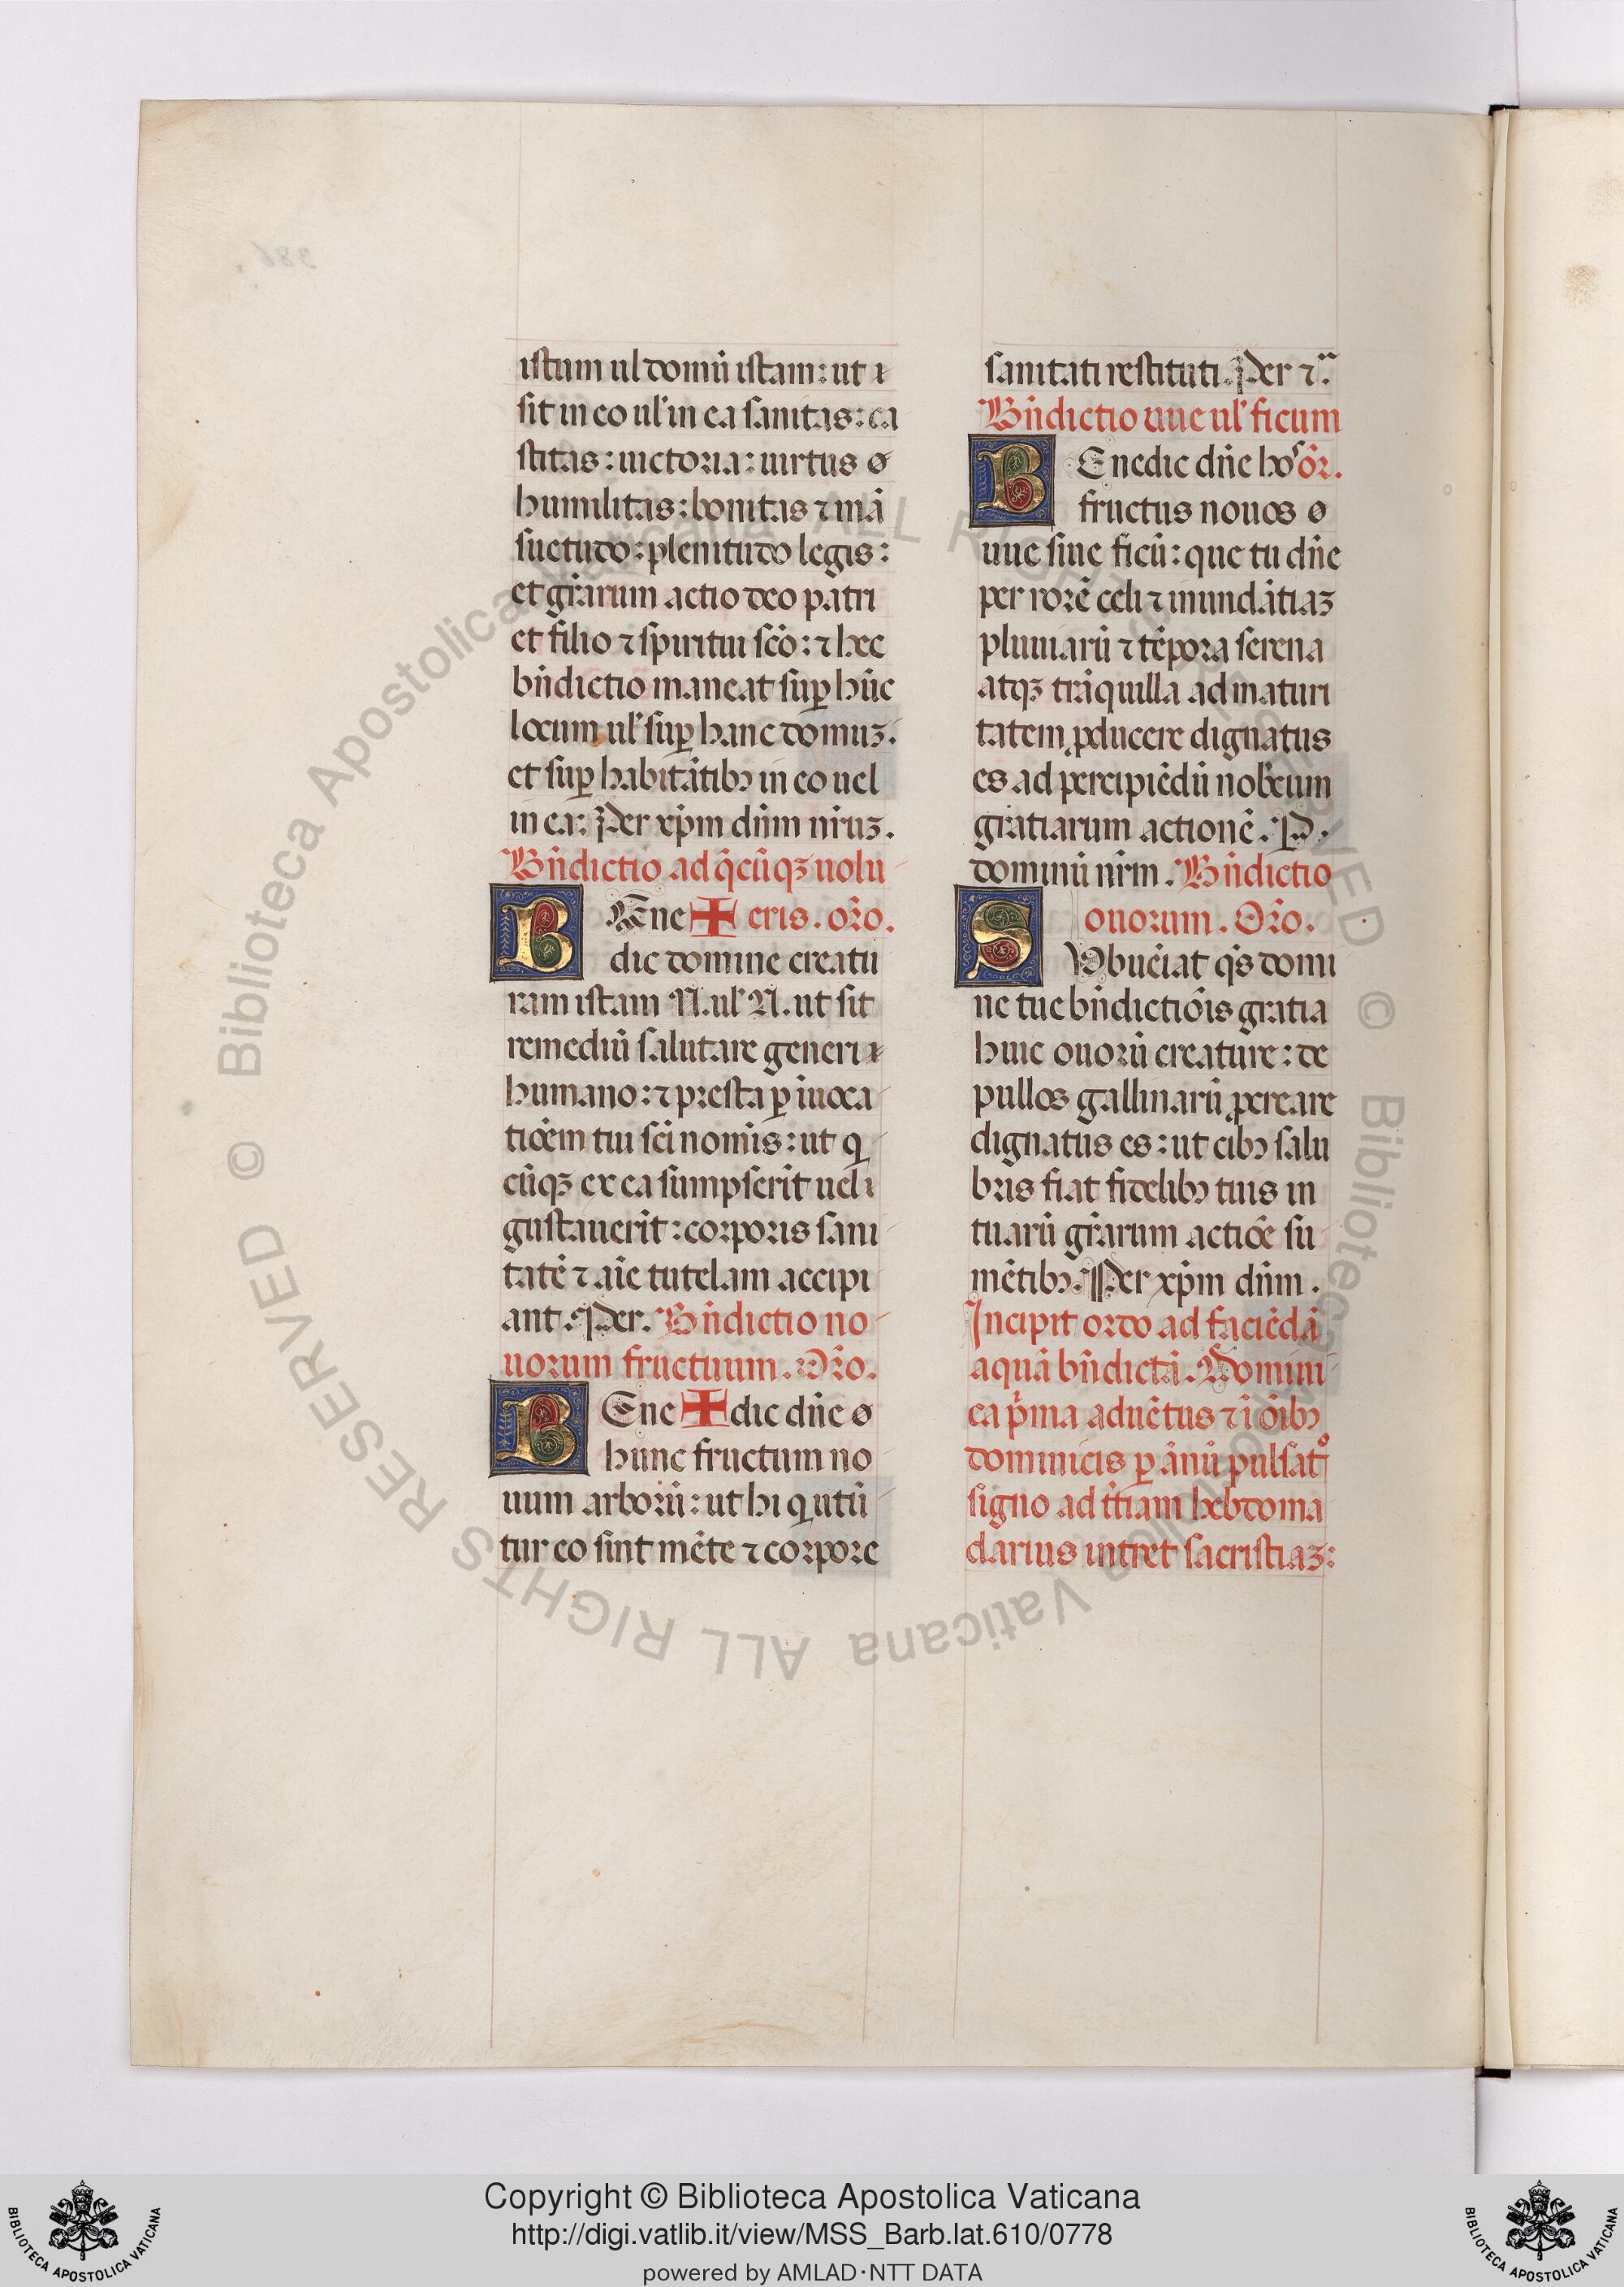 istum ul domũ istam: ut
sit in eo ul' in ea sanitas: ca
stitas: uictoria: uirtus
humilitas: bonitas ⁊ mã
suetudo: plenitudo legis:
et gr̃arum actio deo patri
et filio ⁊ spiritui sc̃o: ⁊ hec
bñdictio maneat sup̱ hũc
locum ul' sup̱ hanc domuꝫ.
et sup̱ habitãtibꝫ in eo uel
in ea: Per xp̃m dñm nr̃uꝫ.
Bñdictio ad q̃cũqꝫ uolu
eris. or̃o.
BEne ✠
dic domine creatu
ram istam N. ul' N. ut sit
remediũ salutare generi
humano: ⁊ presta ꝑ iuoca
tiõem tui sc̃i nomĩs: ut q
cũqꝫ ex ea sumpserĩt uel
gustauerĩt: corporis sani
tatẽ ⁊ aĩe tutelam accipi
ant. Per. Bñdictio no
uorum fructuum. Or̃o.
BEne ✠ dic dñe
hunc fructum no
uum arborũ: ut hi q utũ
tur eo sint mẽte ⁊ corpore
sanitati restituti. Per ⁊.
Bñdictio uue ul' ficum
BEnedic dñe hos or̃.
fructus nouos
uue siue ficũ: que tu dñe
per rorẽ celi ⁊ inundãtiaꝫ
pluuiarũ ⁊ tẽpora serena
atqꝫ trãquilla ad maturi
tatem ꝓducere dignatus
es ad percipiẽdũ nob' cum
gratiarum actionẽ. P.
dominũ nr̃m. Bñdictio
ouorum. Or̃o.
SVbueĩat q̃s domi
ne tue bñdictiõis gratia
huic ouorũ creature: de
pullos gallinarũ ꝓcreare
dignatus es: ut cibꝫ salu
bris fiat fidelibꝫ tuis in
tuarũ gr̃arum actiõe su
mẽtibꝫ. Per xp̃m dñm.
Incipit ordo ad faciẽdã
aquã bñdictã. Domini
ca p̃ma aduẽtus ⁊ ĩ õibꝫ
dominicis ꝑ ãnũ pulsato
signo ad tr̃iam hebdoma
darius intret sacristiaꝫ:
© Biblioteca Apostolica Vaticana ALL RIGHTS RESERVED © Biblioteca Apostolica Vaticana ALL RIGHTS RESERVED
Copyright © Biblioteca Apostolica Vaticana
http://digi.vatlib.it/view/MSS_Barb.lat.610/0778
powered by AMLAD·NTT DATA
BIBLIOTECA APOSTOLICA VATICANA
BIBLIOTECA APOSTOLICA VATICANA